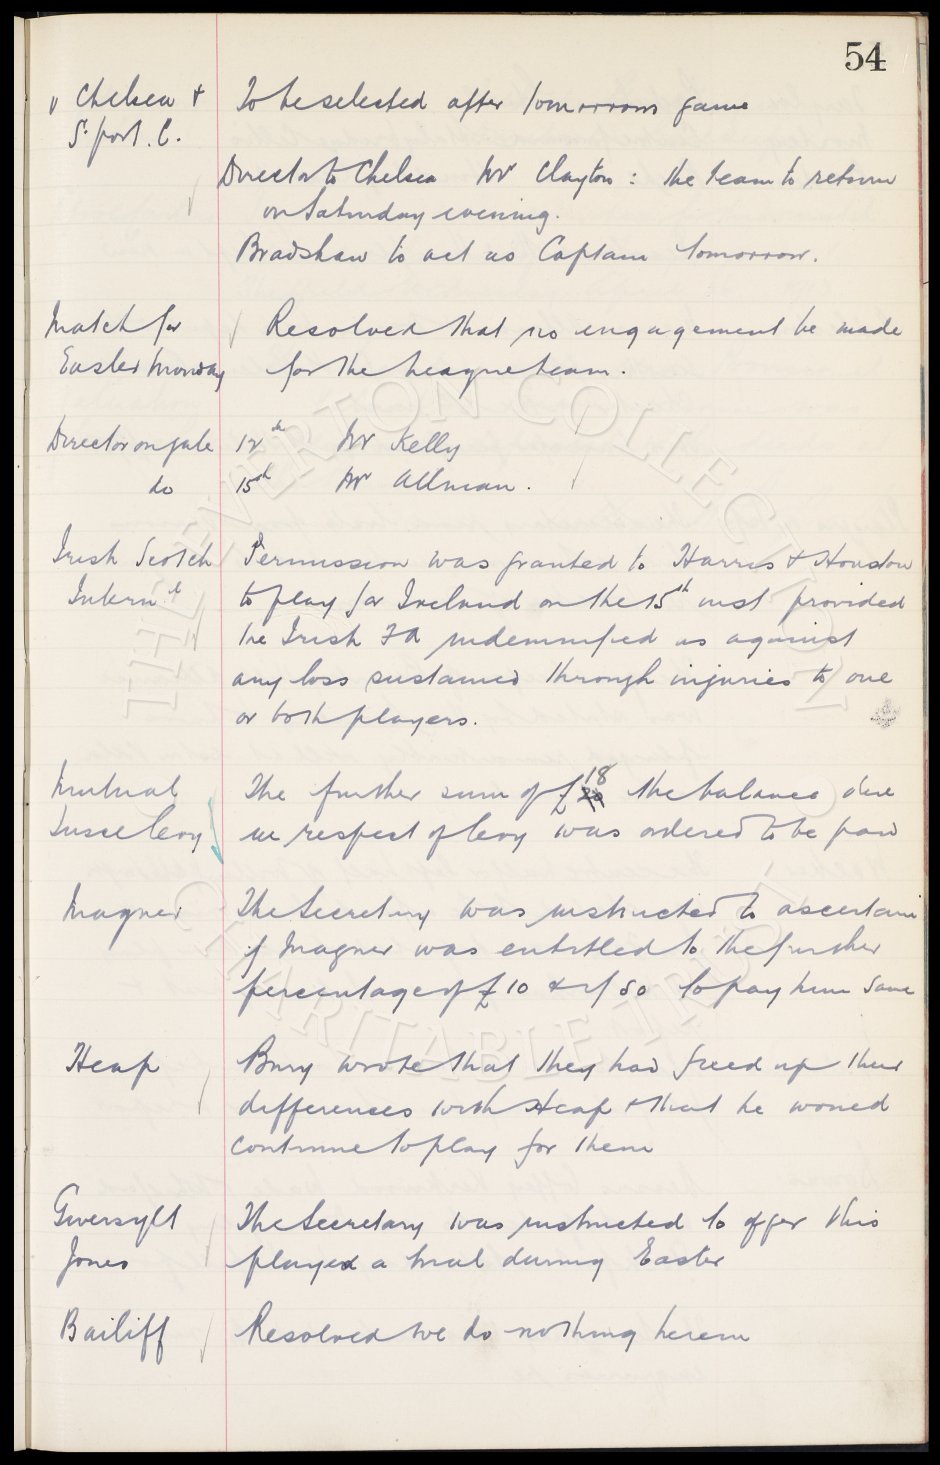 54
v Chelsea + To be selected after tomorrows game
S'port. C.
Director to Chelsea Mr Clayton : the team to return
on Saturday evening.
Bradshaw to act as Captain tomorrow.
Match for Resolved that no engagement be made
Easter Monday for the League team.
Director on gate 12th Mr Kelly
do 15th Mr Allman.
Irish Scotch Permission was granted to Harris & Houston
Intern.l to play for Ireland on the 15th inst provided
the Irish FA indemnified us against
any loss sustained through injuries to one
or both players.
Mutual The further sum of £18 the balance due
Insce levy in respect of levy was ordered to be paid
Magner The Secretary was instructed to ascertain
if Magner was entitled to the further
percentage of £10 & if so to pay him same
Heap Bury wrote that they had fixed up their
differences with Heap & that he would
continue to play for them
Gwersyllt The Secretary was instructed to offer this
Jones player a trial during Easter
Bailiff Resolved we do nothing herein
THE EVERTON COLLECTION
CHARITABLE TRUST